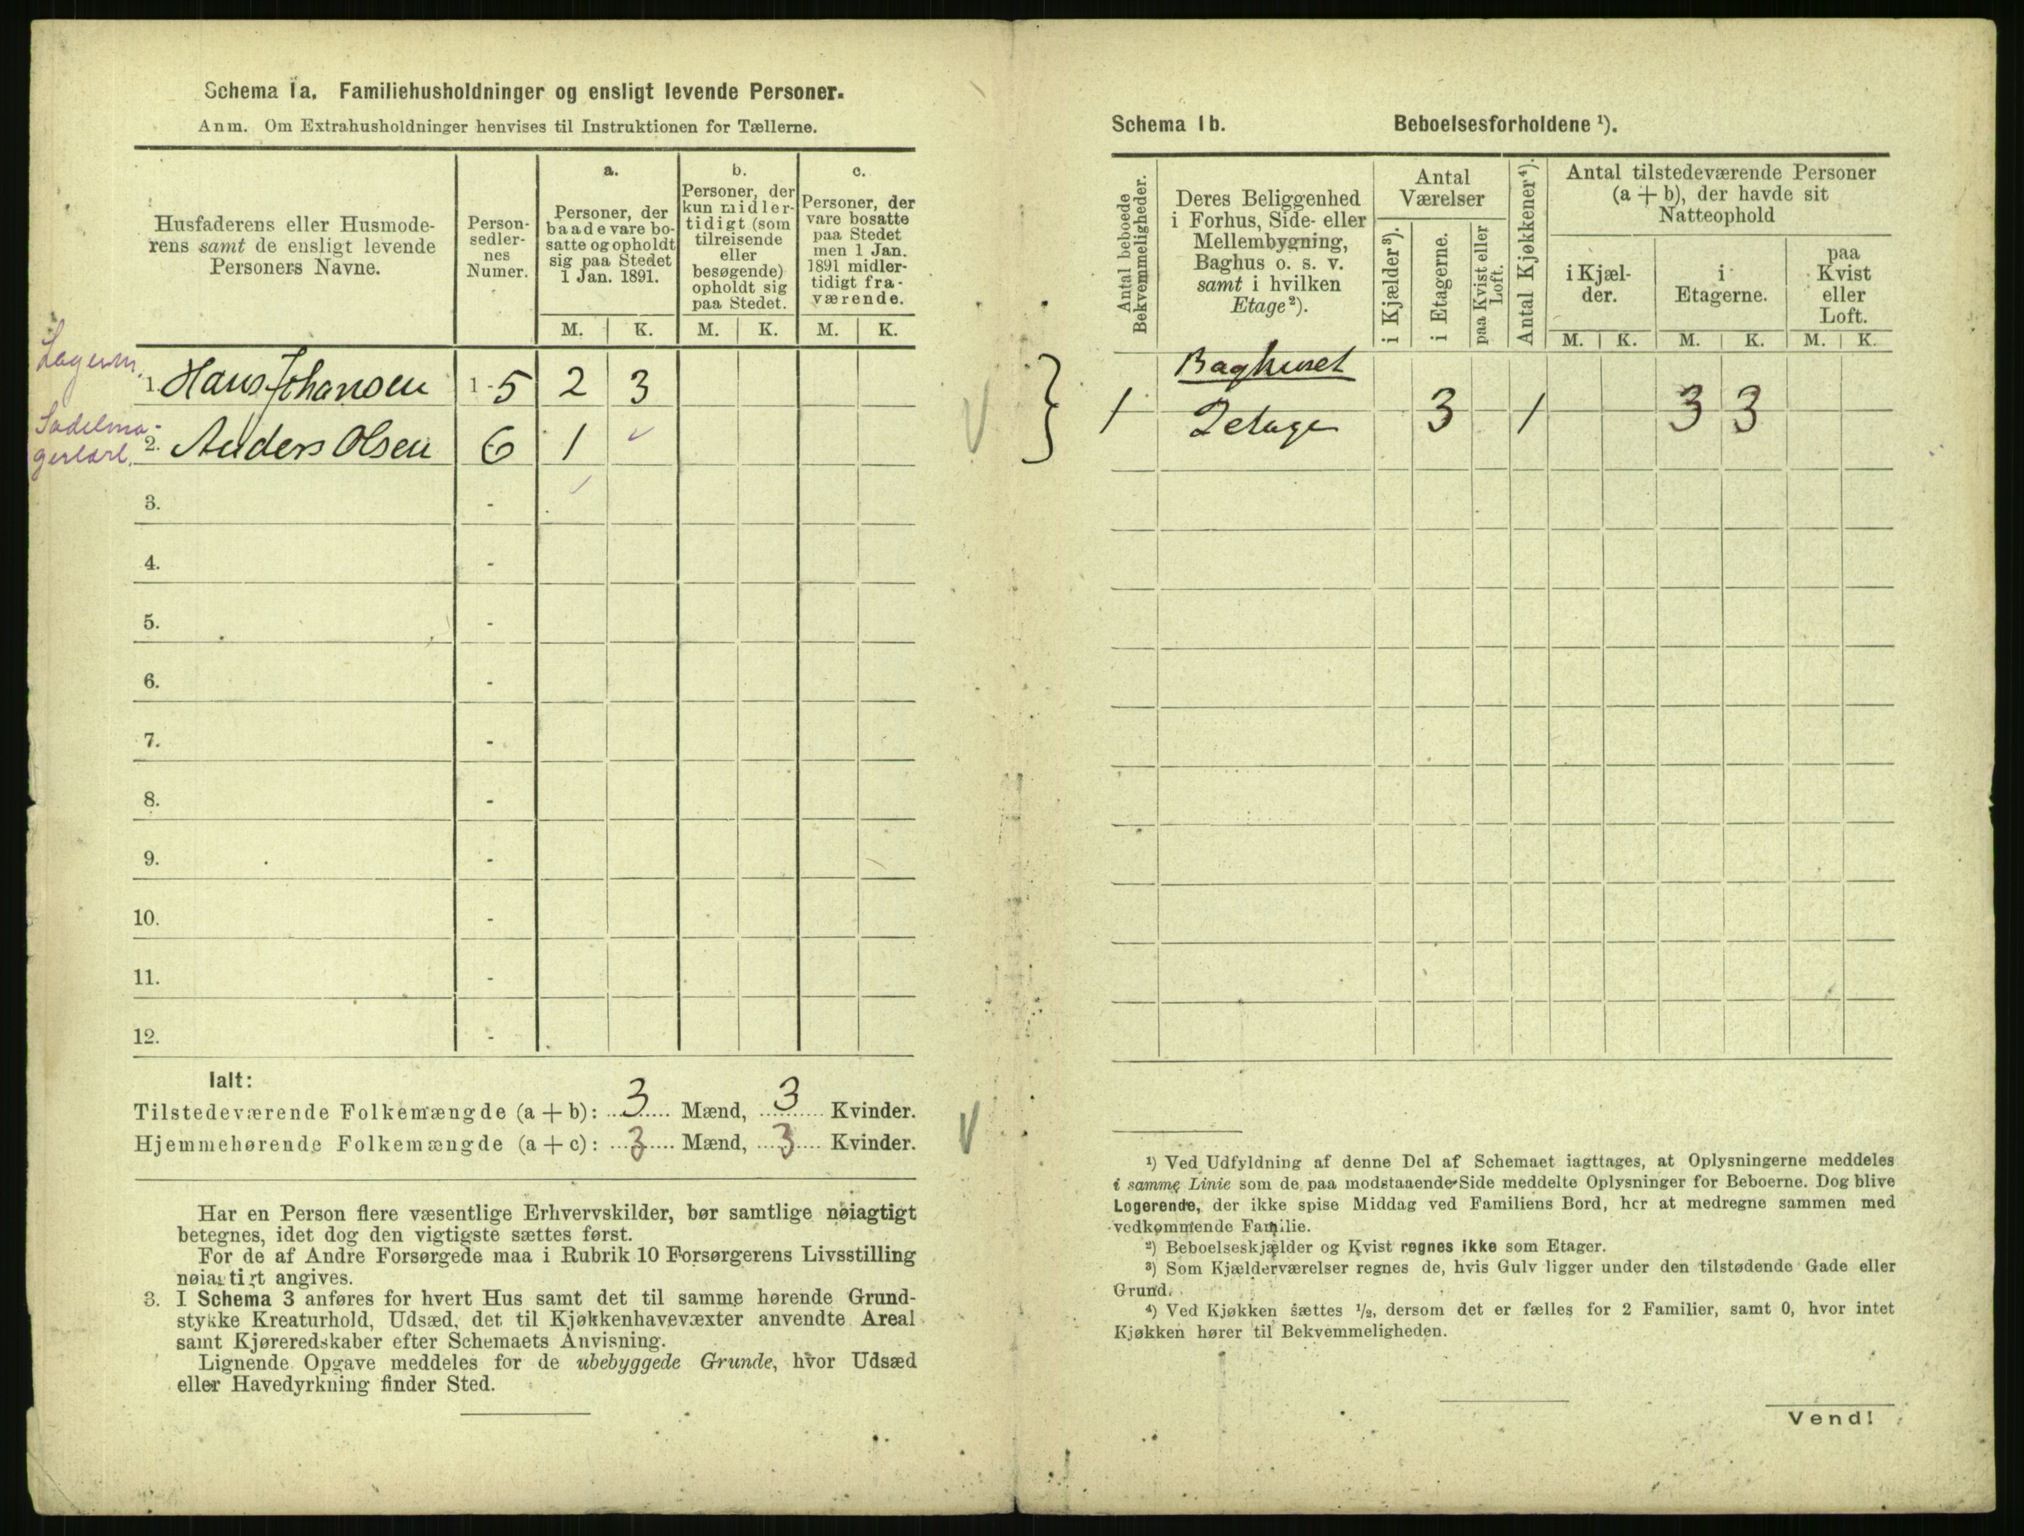 Schema 1a. Familiehusholdninger og ensligt levende Personer.
Anm. Om Extrahusholdninger henvises til Instruktionen for Tællerne.
Husfaderens eller Husmode-
rens samt de ensligt levende
Personers Navne.
Person-
sedler-
nes
Numer.
a.
Personer, der
baade vare bo-
satte og opholdt
sig paa Stedet
1 Jan. 1891.
b.
Personer, der
kun midler-
tidigt (som
tilreisende
eller
besøgende)
opholdt sig
paa Stedet.
c.
Personer, der
vare bosatte
paa Stedet
men 1 Jan.
1891 midler-
tidigt fra-
værende.
M. K. M. K. M. K.
Lagerm.
1. Hans Johansen 1-5 2 3
Sadelma-
gerlærl.
2. Anders Olsen 6 1
3. -
4. -
5. -
6. -
7. -
8. -
9. -
10. -
11. -
12. -
Ialt:
Tilstedeværende Folkemængde (a + b): 3 Mænd, 3 Kvinder.
Hjemmehørende Folkemængde (a + c): 3 Mænd, 3 Kvinder.
Har en Person flere væsentlige Erhvervskilder, bør samtlige nøiagtigt
betegnes, idet dog den vigtigste sættes først.
For de af Andre Forsørgede maa i Rubrik 10 Forsørgerens Livsstilling
nøiagtigt angives.
3. I Schema 3 anføres for hvert Hus samt det til samme hørende Grund-
stykke Kreaturhold, Udsæd, det til Kjøkkenhavevæxter anvendte Areal
samt Kjøreredskaber efter Schemaets Anvisning.
Lignende Opgave meddeles for de ubebyggede Grunde, hvor Udsæd
eller Havedyrkning finder Sted.
Schema 1b. Beboelsesforholdene ¹).
Antal beboede
Bekvemmeligheder.
Deres Beliggenhed
i Forhus, Side- eller
Mellembygning,
Baghus o. s. v.
samt i hvilken
Etage²).
Antal
Værelser
i Kjælder³).
i Etagerne.
paa Kvist eller
Loft.
Antal Kjøkkener⁴).
Antal tilstedeværende Personer
(a + b), der havde sit
Natteophold
i Kjæl-
der.
i
Etagerne.
paa
Kvist
eller
Loft.
M. K. M. K. M. K.
Baghuset
1 2 etage 3 1 3 3
¹) Ved Udfyldning af denne Del af Schemaet iagttages, at Oplysningerne meddeles
i samme Linie som de paa modstaaende Side meddelte Oplysninger for Beboerne. Dog blive
Logerende, der ikke spise Middag ved Familiens Bord, her at medregne sammen med
vedkommende Familie.
²) Beboelseskjælder og Kvist regnes ikke som Etager.
³) Som Kjælderværelser regnes de, hvis Gulv ligger under den tilstødende Gade eller
Grund.
⁴) Ved Kjøkken sættes ½, dersom det er fælles for 2 Familier, samt 0, hvor intet
Kjøkken hører til Bekvemmeligheden.
Vend!